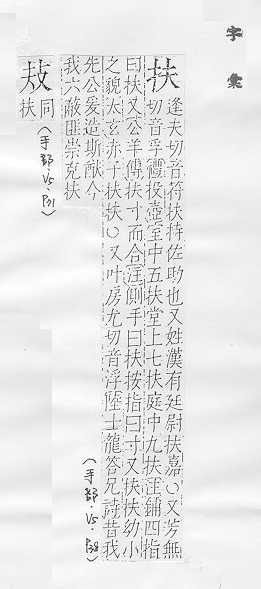 字彙
扶
逢夫切音符扶持佐助也又姓漢有廷尉扶嘉○又芳無
切音孚禮投壺室中五扶堂上七扶庭中九扶注鋪四指
曰扶又公羊傳扶寸而合注側手曰扶按指曰寸又扶扶幼小
之貌太玄赤子扶扶○又叶房尤切音浮陸士龍答兄詩昔我
先公爰造斯猷今
我六蔽匪崇克扶
(手部·
𢻳
同
扶
(手部·